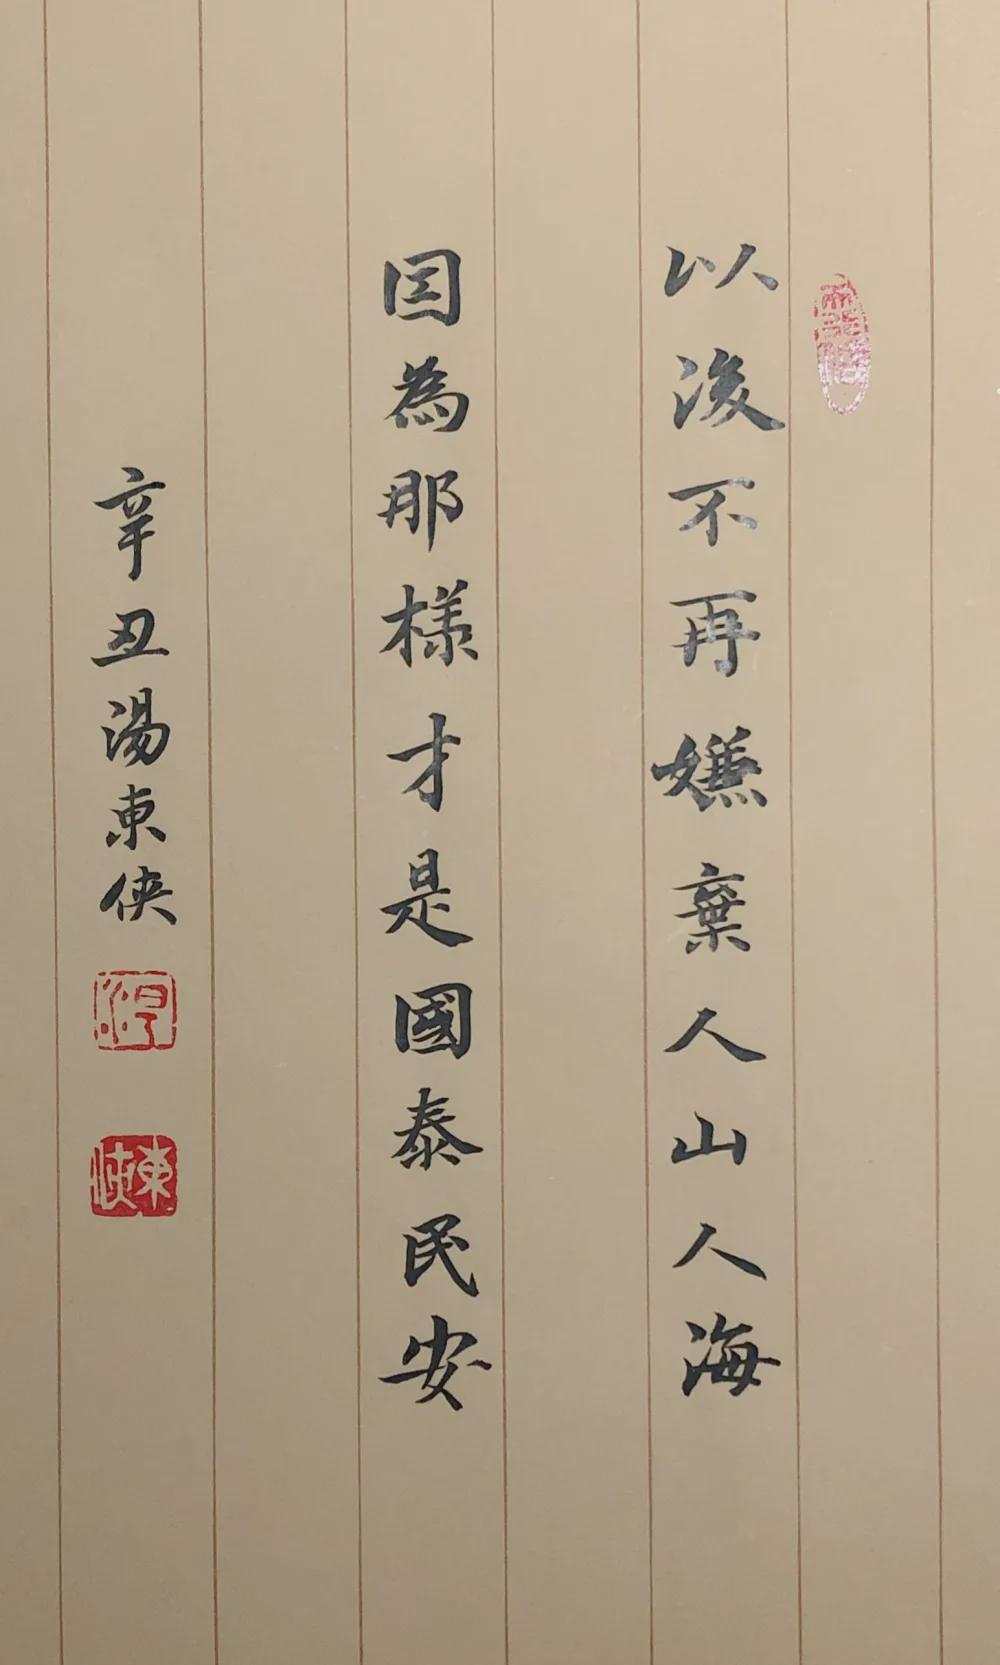 以後不再嫌棄人山人海
因為那樣才是國泰民安
辛丑湯東俠
湯
東俠